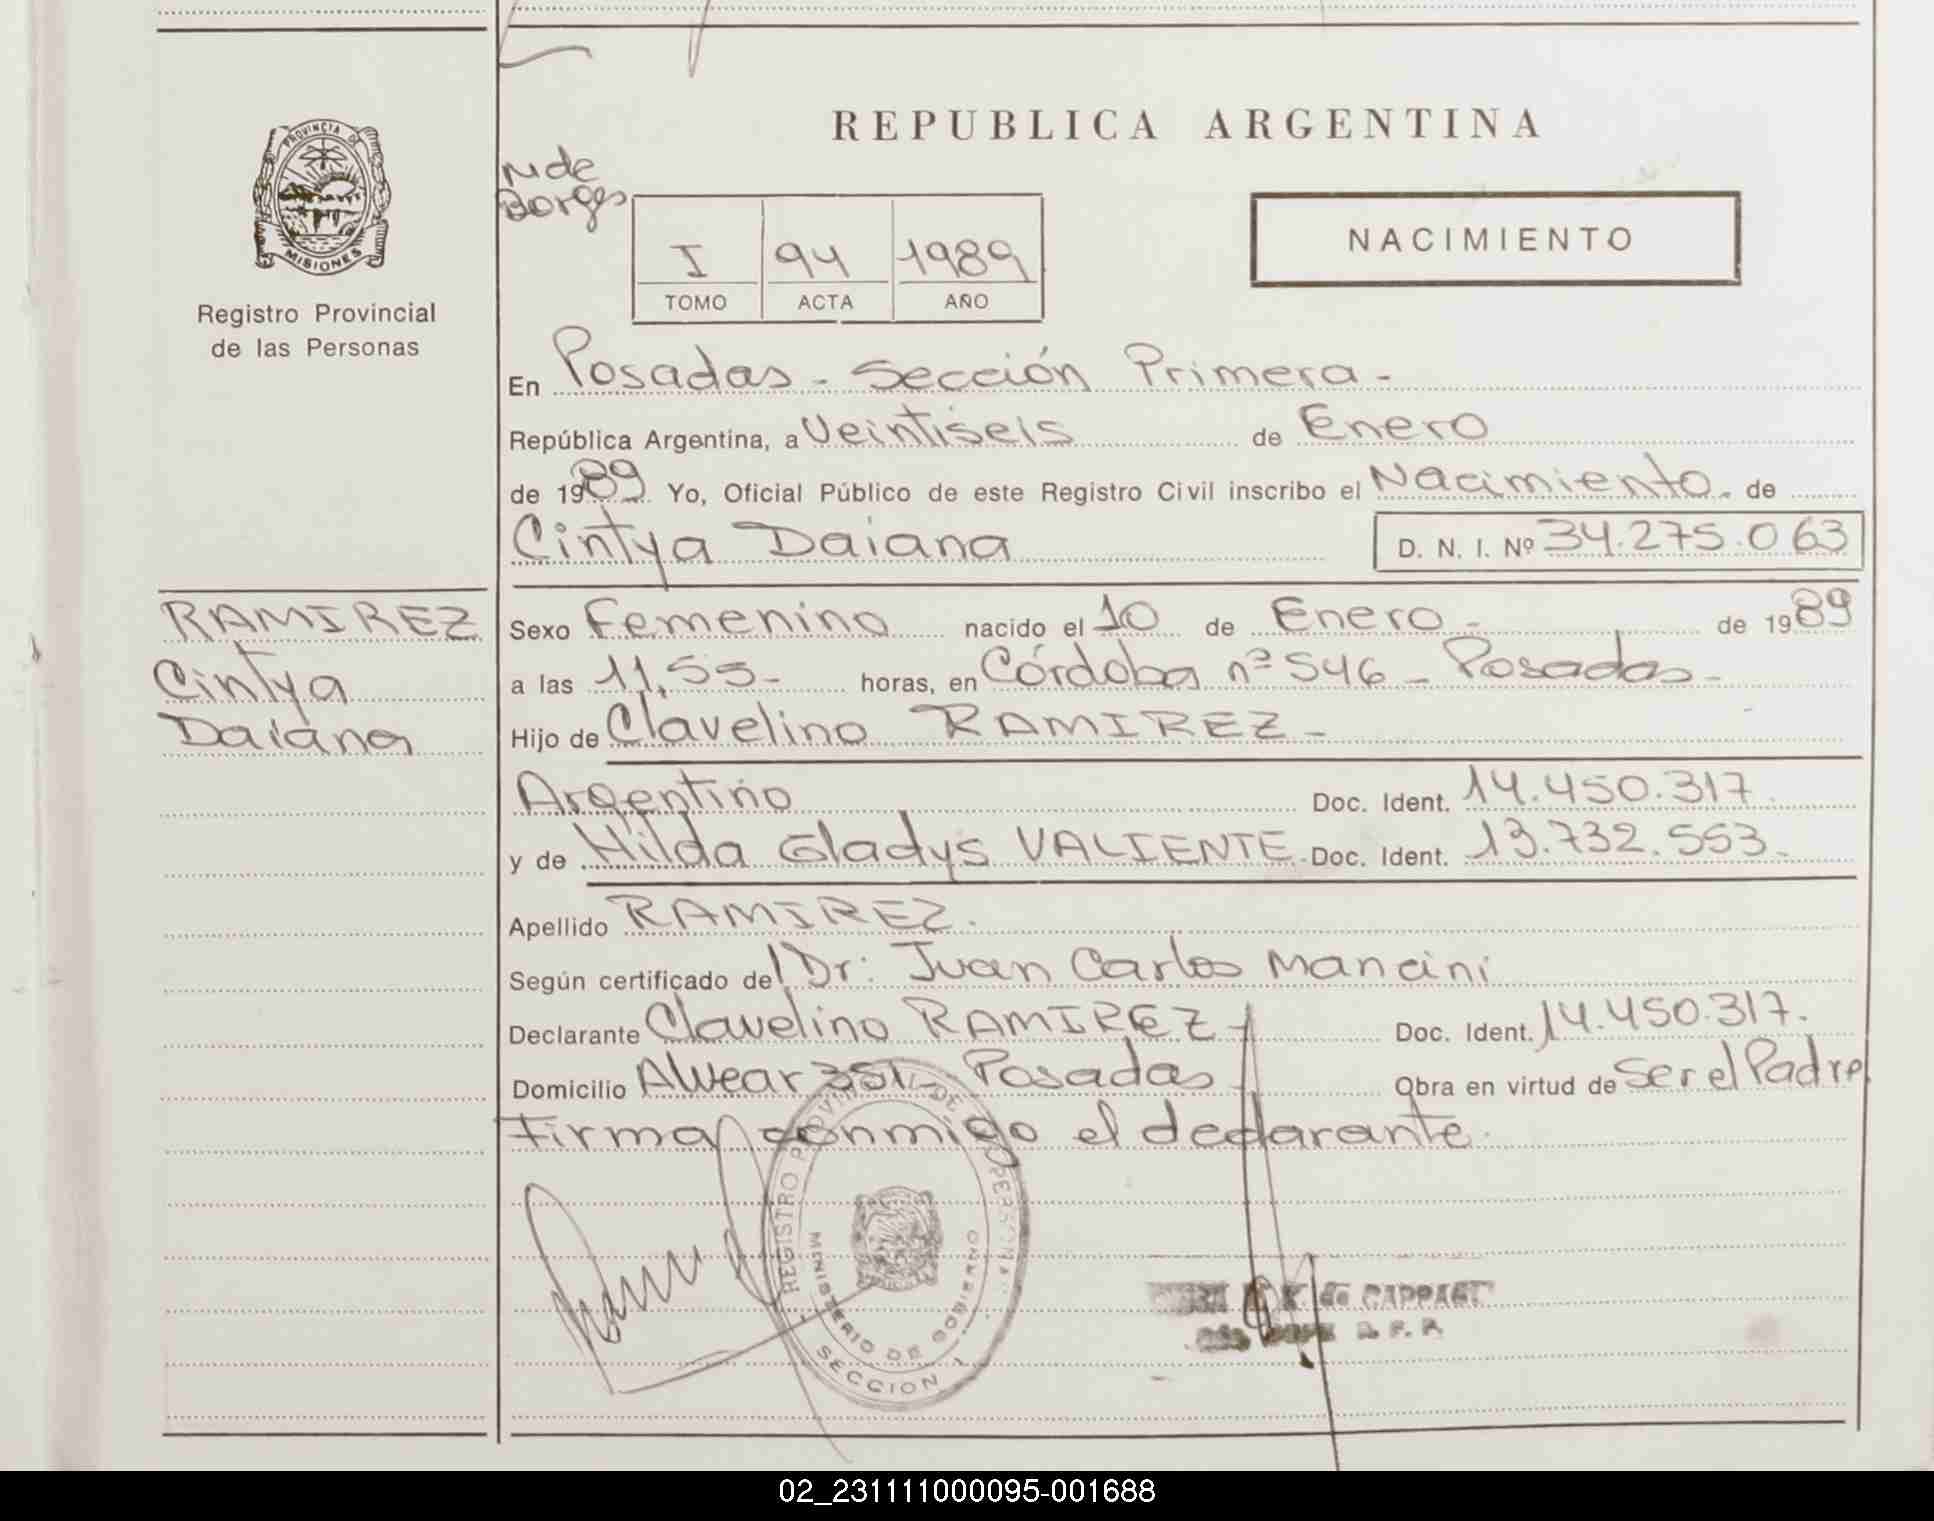 REPUBLICA ARGENTINA
PROVINCIA DE
MISIONES
Registro Provincial
de las Personas
N de
Borges
I 94 1989
TOMO ACTA AÑO
NACIMIENTO
En Posadas - Sección Primera -
República Argentina, a Veintiseis de Enero
de 1989 Yo, Oficial Público de este Registro Civil inscribo el Nacimiento. de
Cintya Daiana D. N. I. Nº 34.275.063
RAMIREZ
Cintya
Daiana
Sexo Femenino nacido el 10 de Enero - de 1989
a las 11,55- horas, en Córdoba nº 546 - Posadas -
Hijo de Clavelino RAMIREZ -
Argentino Doc. Ident. 14.450.317
y de Hilda Gladys VALIENTE. Doc. Ident. 13.732.553.
Apellido RAMIREZ.
Según certificado del Dr: Juan Carlos Mancini
Declarante Clavelino RAMIREZ Doc. Ident. 14.450.317.
Domicilio Alvear 351 - Posadas Obra en virtud de Ser el Padre
Firma conmigo el declarante.
REGISTRO PROVINCIAL DE LAS PERSONAS
MINISTERIO DE GOBIERNO
SECCION 1
02_231111000095-001688